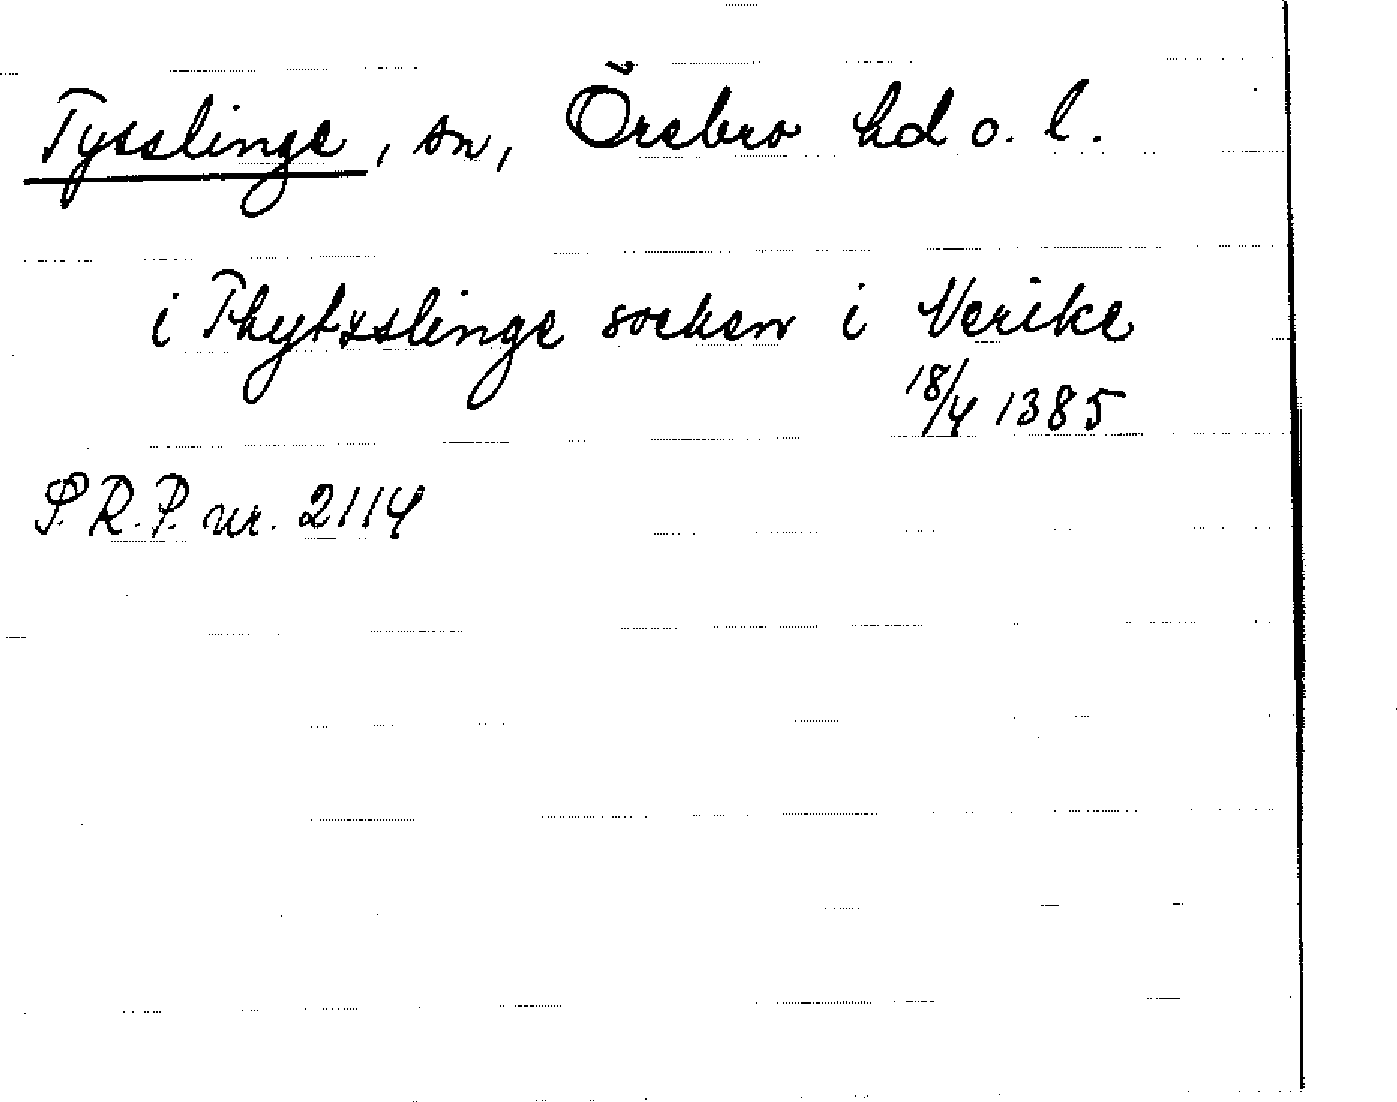 Tysslinge, sn, Örebro hd o. l.
i Thytzslinge socken i Nerike
18/4 1385
S.R.P. nr. 2114